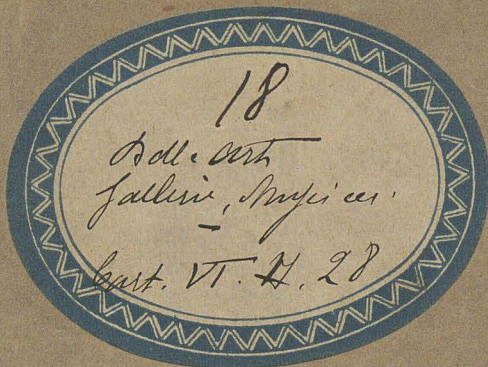 18
Belle Arti
Gallerie, Musei ecc.
Cart. VI. H. 28